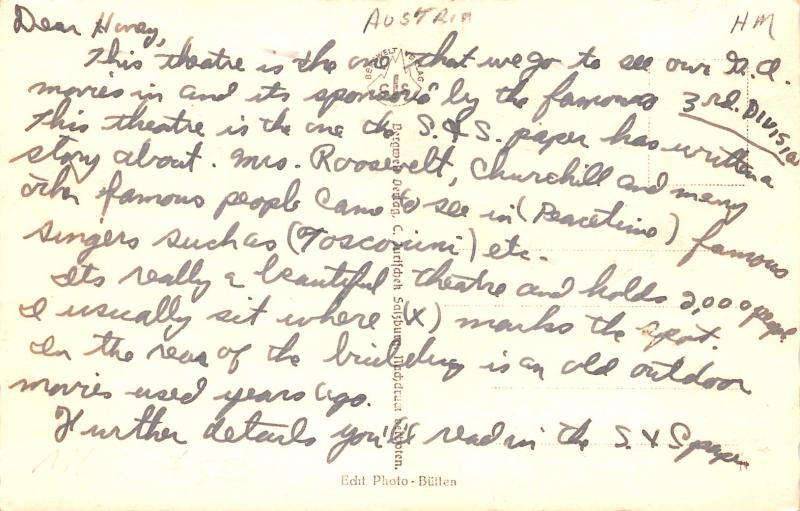 AUSTRIA
HM
Dear Honey,
This theatre is the one that we go to see our G.I.
movies in and its sponsored by the famous 3rd. DIVISION
This theatre is the one the S. & S. paper has written a
story about. Mrs. Roosevelt, Churchill and many
other famous people came to see in (Peacetime) famous
singers such as (Tosconini) etc.
Its really a beautiful theatre and holds 2,000 people
I usually sit where (X) marks the spot.
In the rear of the building is an old outdoor
movies used years ago.
Further details you'll read in the S. & S paper
BERGWELT VERLAG
Bergwelt Verlag, C. Jurischek Salzburg, Nachdruck verboten.
Echt Photo-Bütten